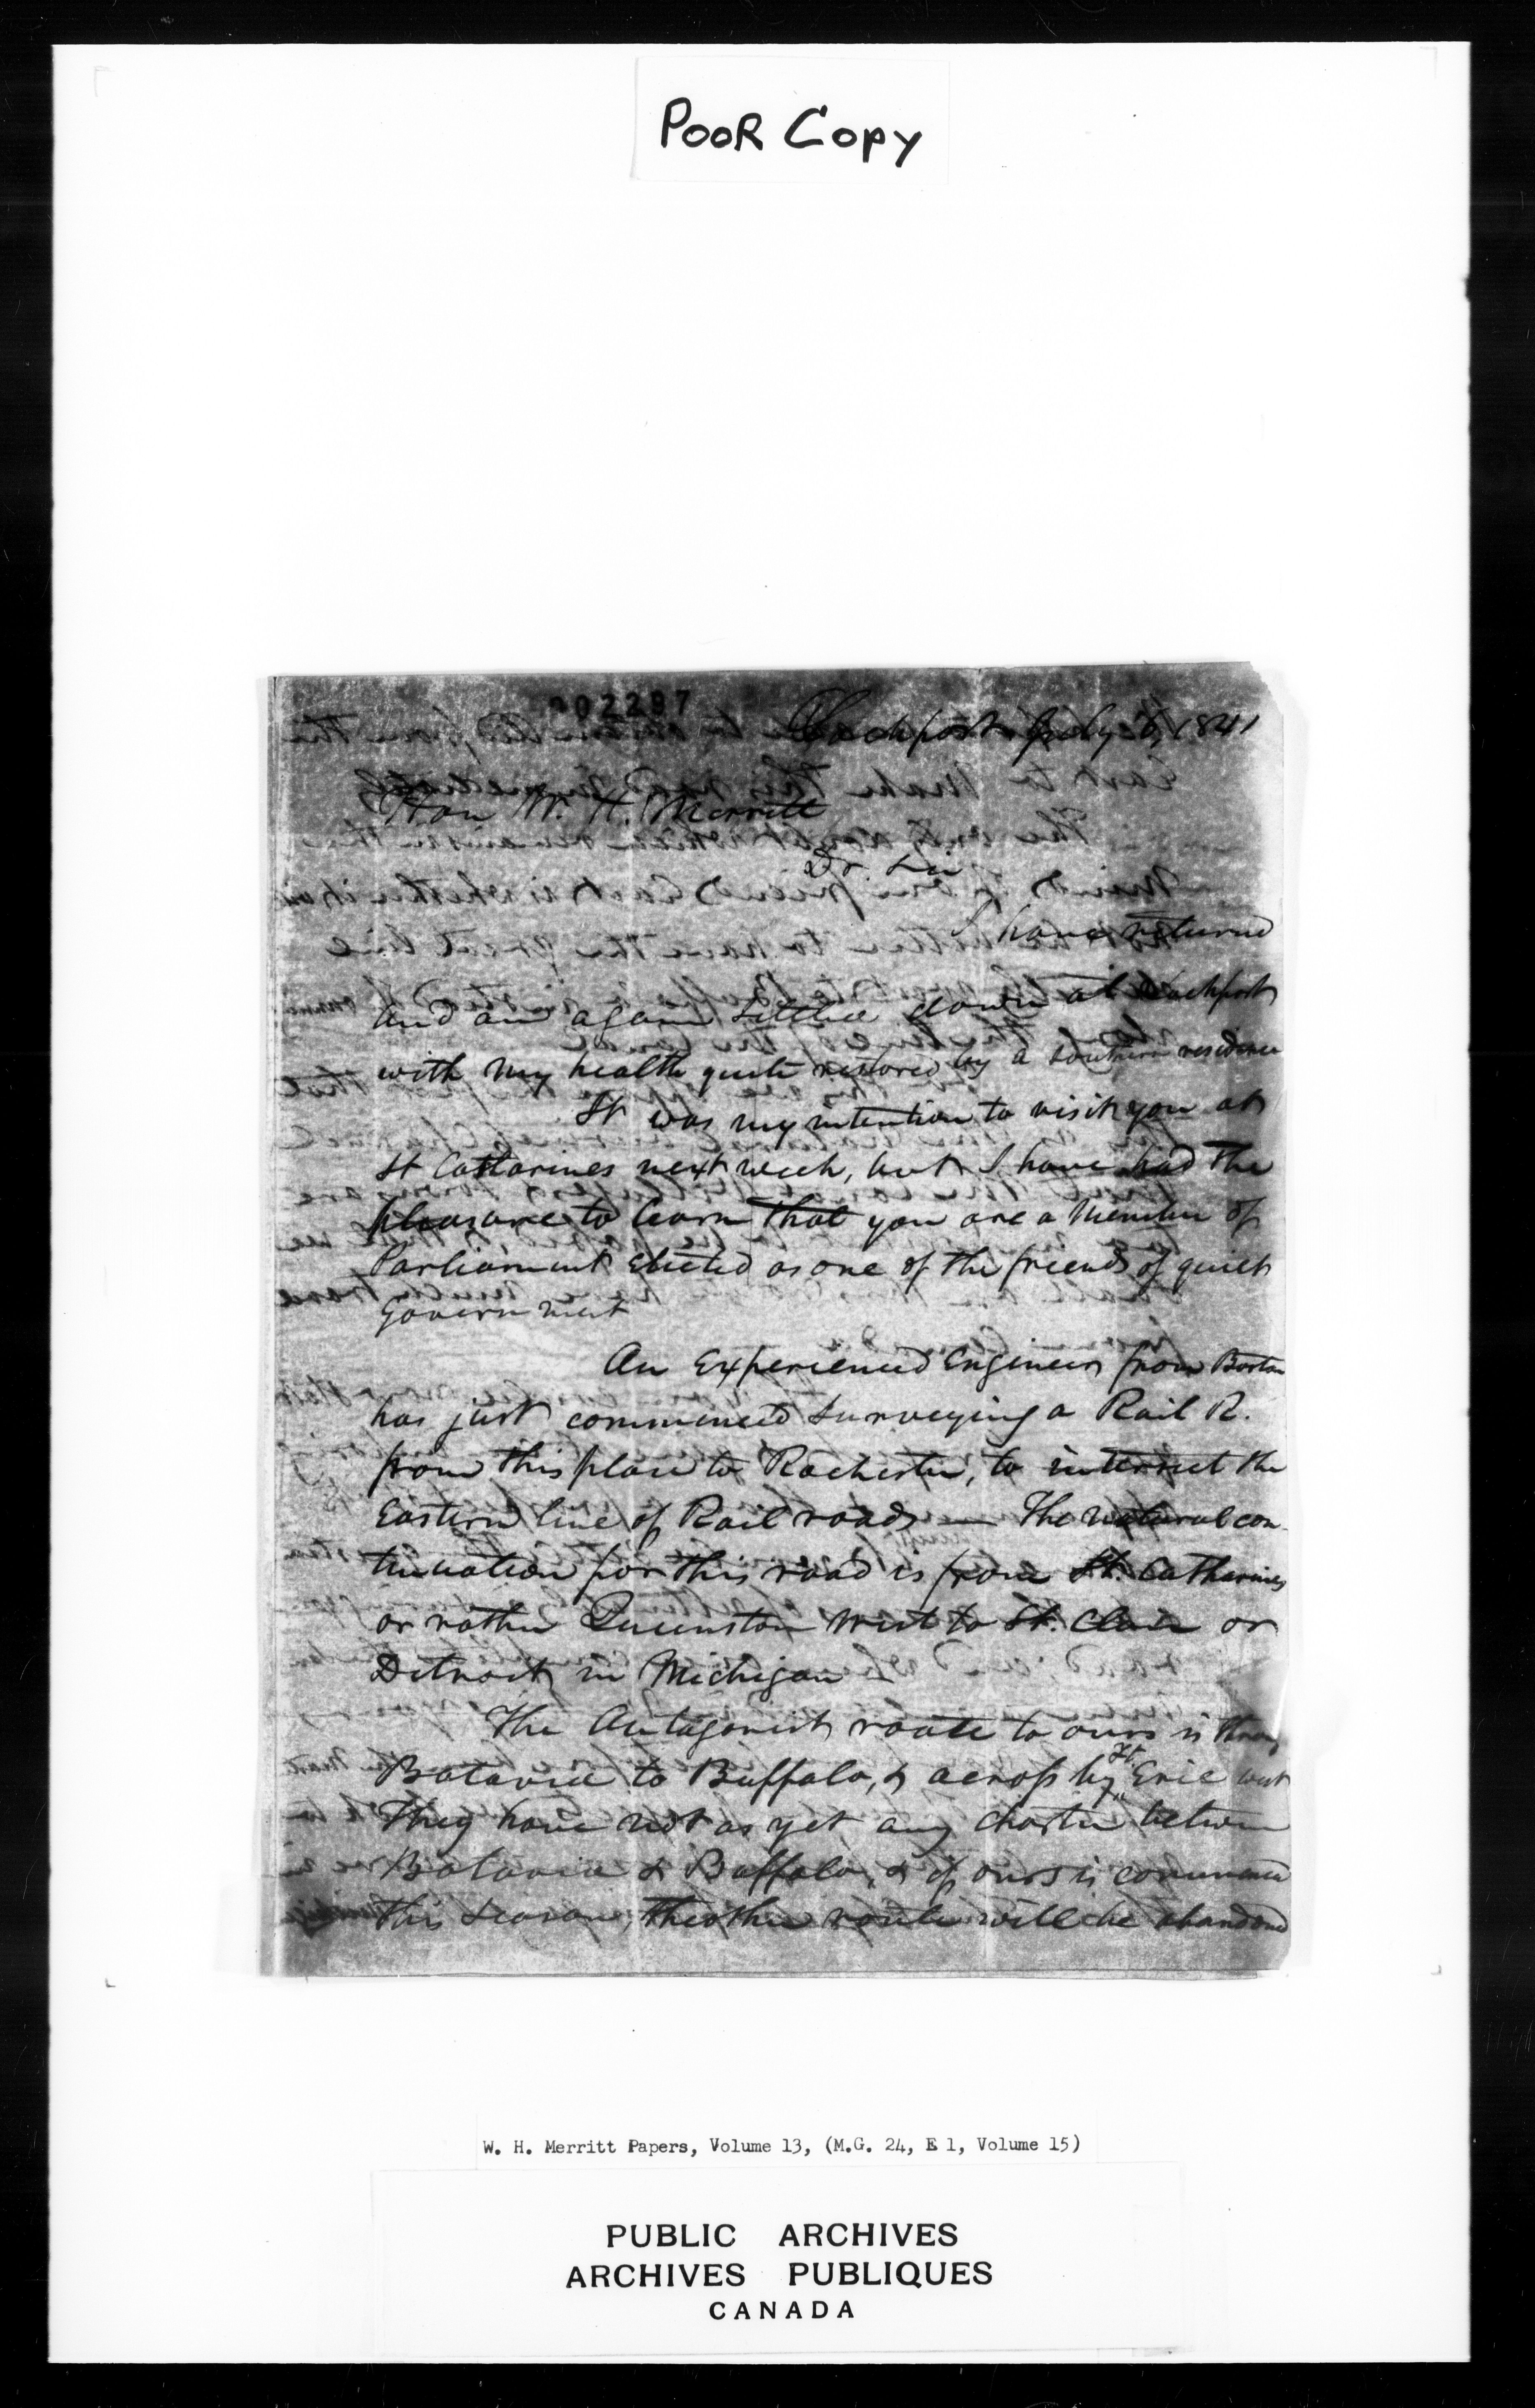 POOR COPY
002297
Lockport July 6, 1841
Hon W. H. Merritt
Dr. Sir
I have returned
and am again settled down at Lockport
with my health quite restored by a southern residence
It was my intention to visit you at
St Catharines next week, but I have had the
pleasure to learn that you are a Member of
Parliament Elected as one of the friends of quiet
Government
An Experienced Engineer from Boston
has just commenced surveying a Rail R.
from this place to Rochester, to intersect the
Eastern line of Rail roads — The natural con-
tinuation for this road is from St. Catharines
or rather Queenston West to St. Clair or
Detroit in Michigan
The Antagonist route to ours is through
Batavia to Buffalo, & across by Ft. Erie west
They have not as yet any charter between
Batavia & Buffalo, & if ours is commenced
this season, the other route will be abandoned
W. H. Merritt Papers, Volume 13, (M.G. 24, E 1, Volume 15)
PUBLIC ARCHIVES
ARCHIVES PUBLIQUES
CANADA